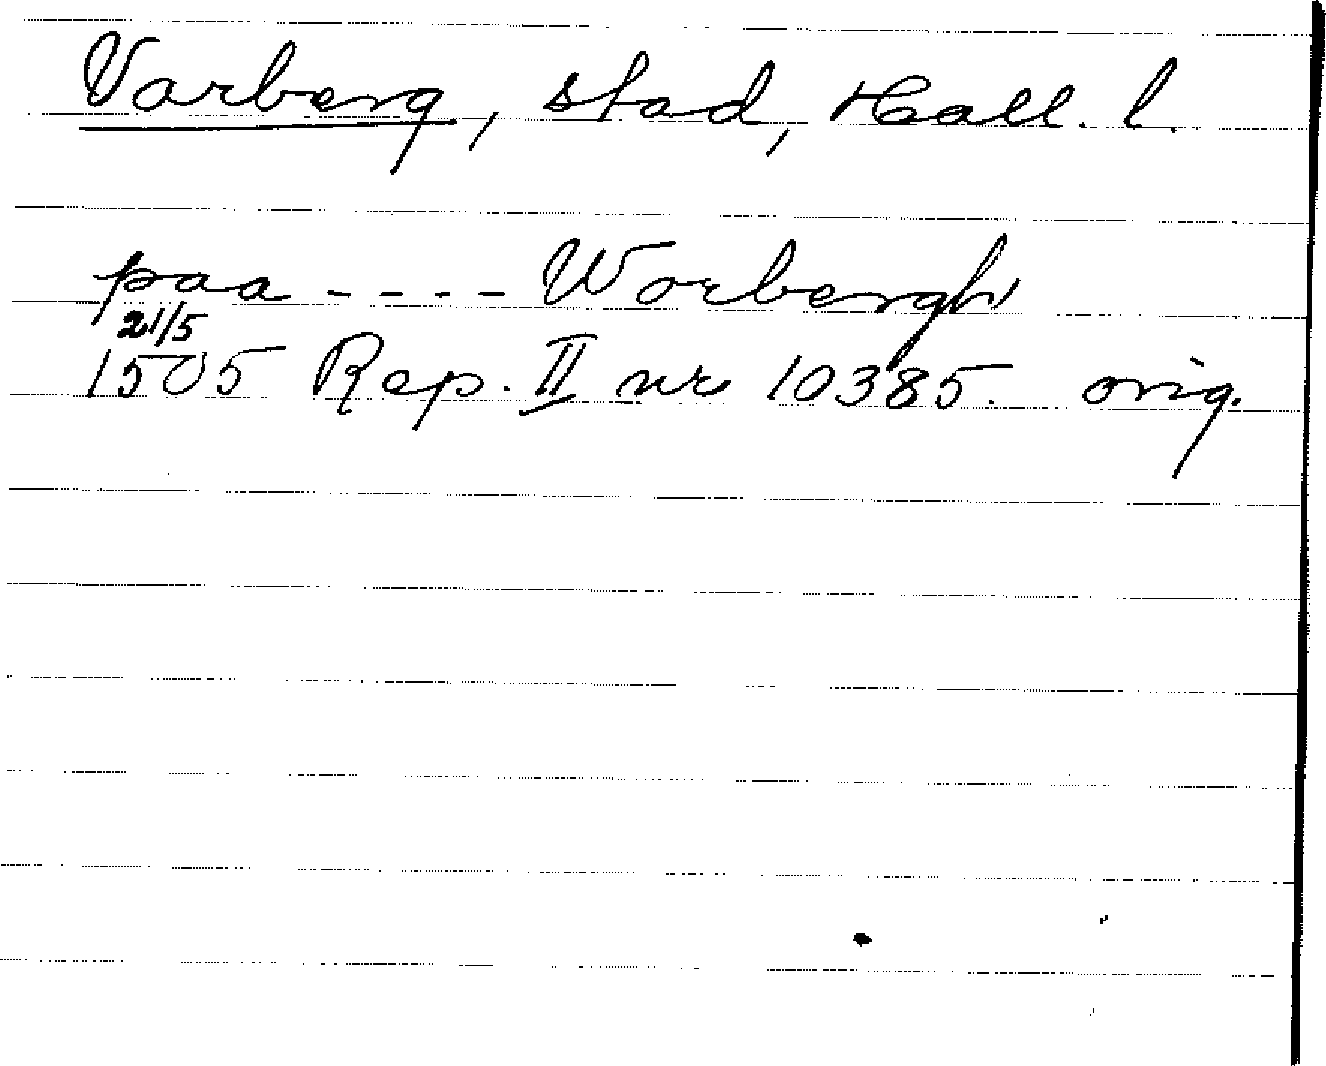 Varberg, stad, Hall. l.
paa - - - - Worbergh
21/5
1505 Rep. II nr 10385. orig.